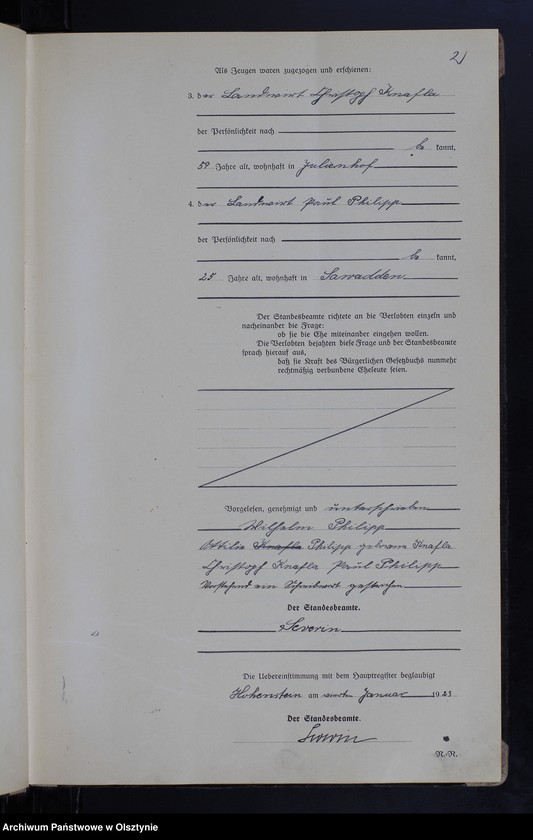 2)
Als Zeugen waren zugezogen und erschienen:
3. der Landwirt Christoph Knafla
der Persönlichkeit nach
be kannt,
50 Jahre alt, wohnhaft in Julienhof
4. der Landwirt Paul Philipp
der Persönlichkeit nach
be kannt,
25 Jahre alt, wohnhaft in Sawadden
Der Standesbeamte richtete an die Verlobten einzeln und
nacheinander die Frage:
ob sie die Ehe miteinander eingehen wollen.
Die Verlobten bejahten diese Frage und der Standesbeamte
sprach hierauf aus,
daß sie kraft des Bürgerlichen Gesetzbuchs nunmehr
rechtmäßig verbundene Eheleute seien.
Vorgelesen, genehmigt und unterschrieben
Wilhelm Philipp
Ottilie Knafla Philipp geborene Knafla
Christoph Knafla Paul Philipp
Vorstehend ein Schreibwort gestrichen
Der Standesbeamte.
Severin
Die Uebereinstimmung mit dem Hauptregister beglaubigt
Hohenstein am vierten Januar 19
Der Standesbeamte.
Severin
N.-R.
Archiwum Państwowe w Olsztynie